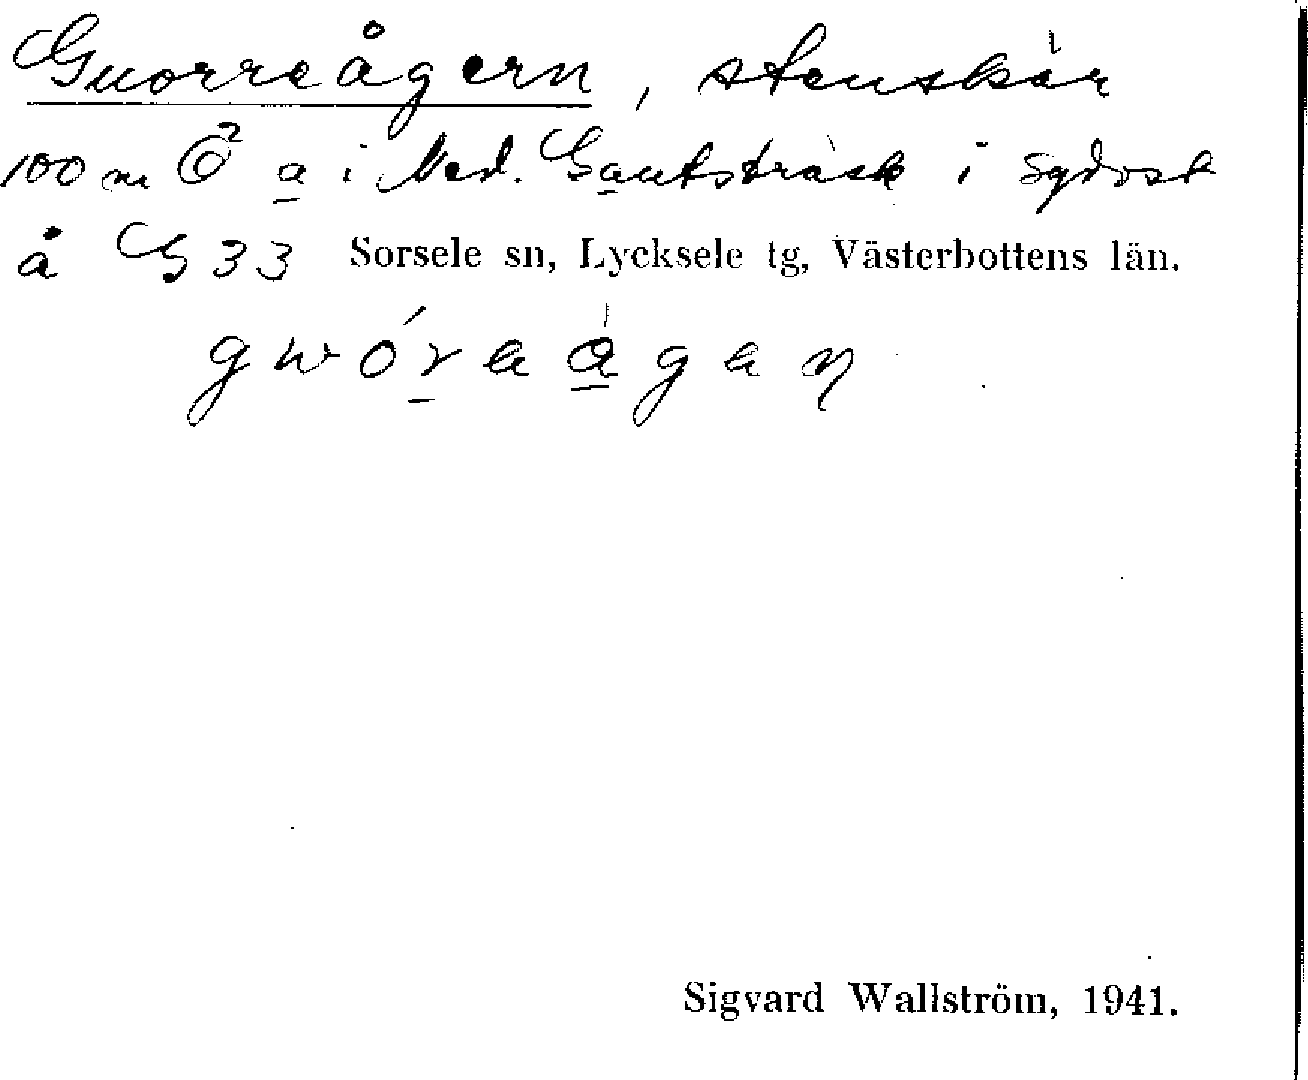 Guorreågern, stenskär
100 m Ö² a i Ned. Gautsträsk i sydost
å G 33 Sorsele sn, Lycksele tg, Västerbottens län.
gwóraàgaŋ
Sigvard Wallström, 1941.